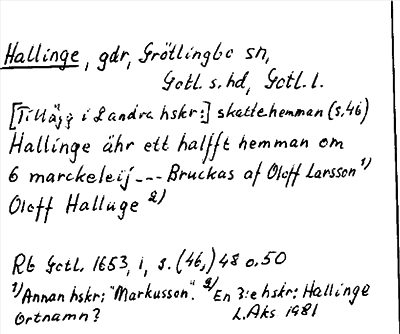 Hallinge, gdr, Grötlingbo sn,
Gotl. s. hd, Gotl. l.
[Tillägg i Landra hskr:] skattehemman (s. 46)
Hallinge ähr ett halfft hemman om
6 marckeleij --- Bruckas af Oloff Larsson 1)
Oloff Halluge 2)
Rb Gotl. 1653, 1, s. (46,) 48 o. 50
1) Annan hskr; "Markusson". 2) En 3:e hskr: Hallinge
Ortnamn? L. Aks 1981